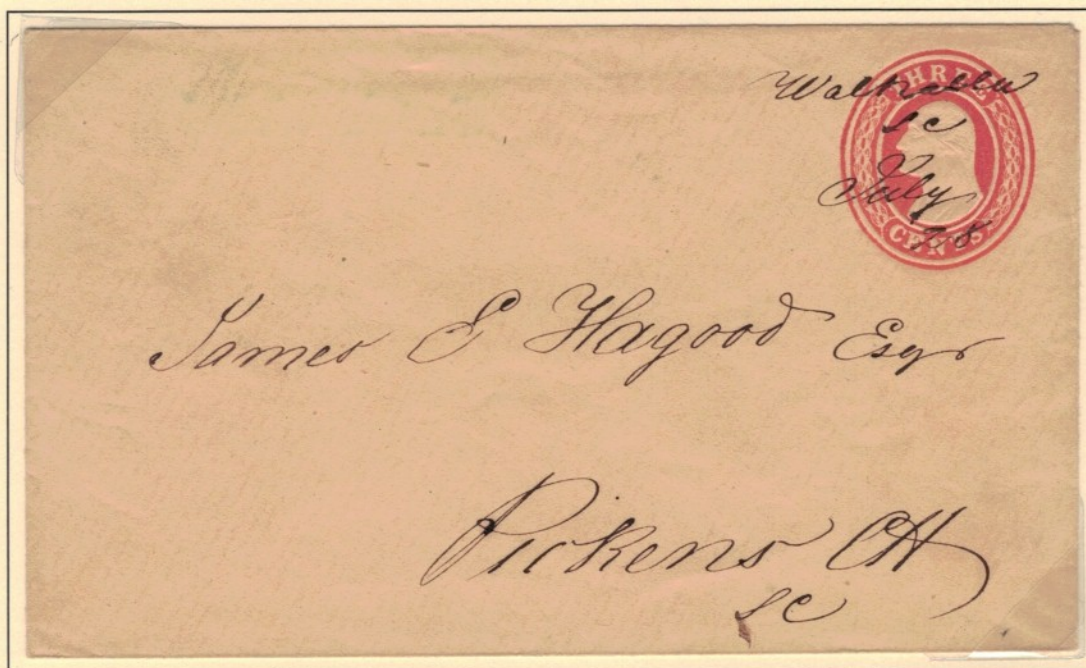 THREE
Walhalla
SC
July
28
CENTS
James E Hagood Esqr
Pickens CH
SC